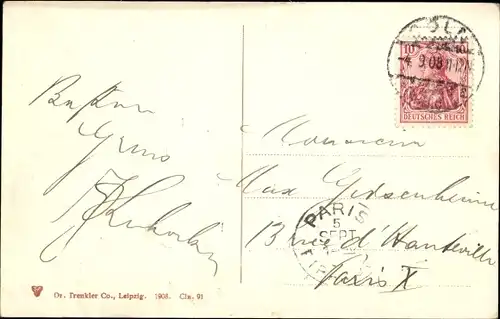 Besten
Gruss
10 10
4. 9. 08
DEUTSCHES REICH
Monsieur
Max
13 rue d'Hauteville
Paris X
PARIS
5
SEPT
Dr. Trenkler Co., Leipzig. 1908. Cln. 91